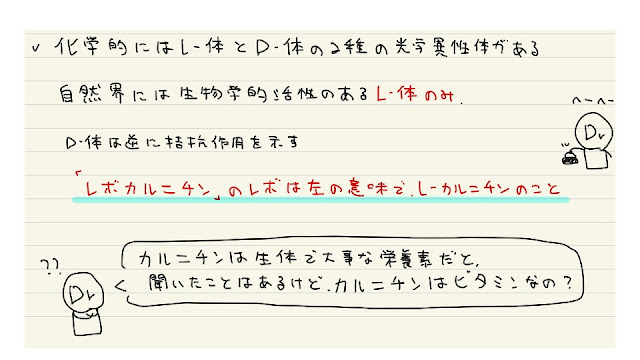 ✓ 化学的にはL-体とD-体の2種の光学異性体がある
自然界には生物学的活性のあるL-体のみ.
へーへー
Dr
D-体は逆に拮抗作用を示す
「レボカルニチン」のレボは左の意味で、L-カルニチンのこと
??
Dr
カルニチンは生体で大事な栄養素だと、
聞いたことはあるけど、カルニチンはビタミンなの?